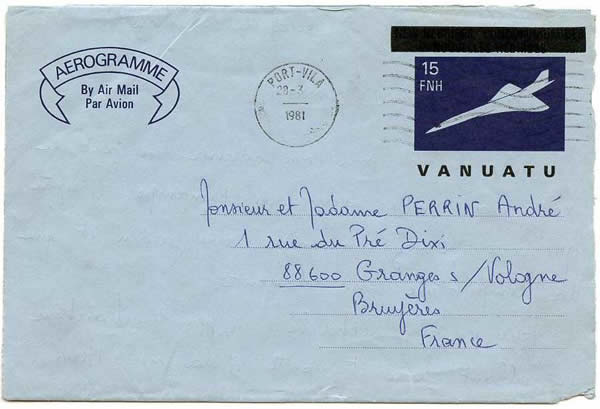 AEROGRAMME
By Air Mail
Par Avion
PORT-VILA
28-3
1981
15
FNH
VANUATU
Monsieur et Madame PERRIN André
1 rue du Pré Dixi
88600 Granges s/Vologne
Bruyères
France